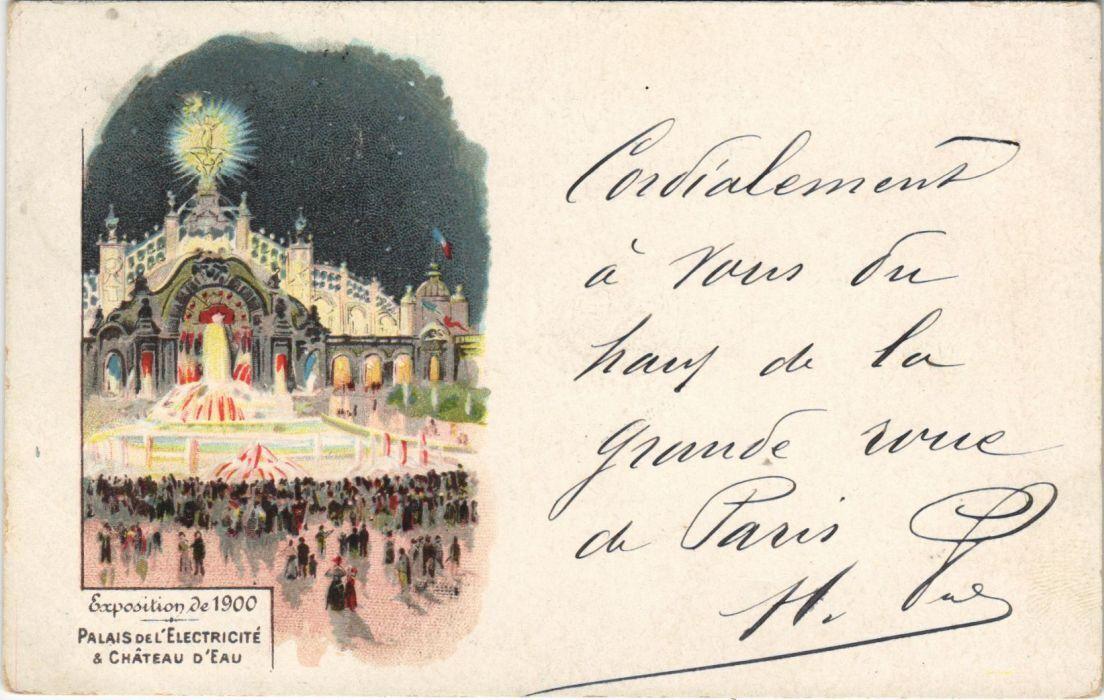 Exposition de 1900
PALAIS DE L'ÉLECTRICITÉ
& CHÂTEAU D'EAU
Cordialement
à vous du
haut de la
grande roue
de Paris
H.